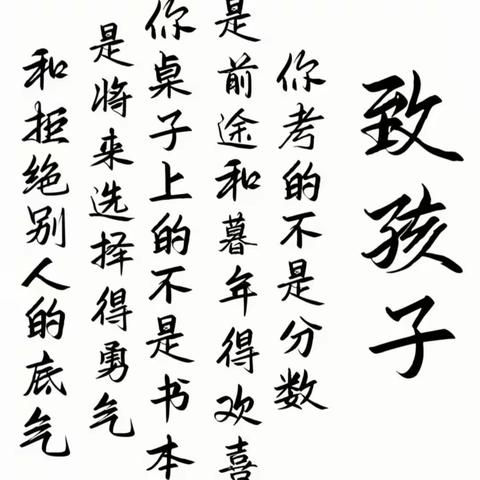 致孩子
你考的不是分数
是前途和暮年得欢喜
你桌子上的不是书本
是将来选择得勇气
和拒绝别人的底气